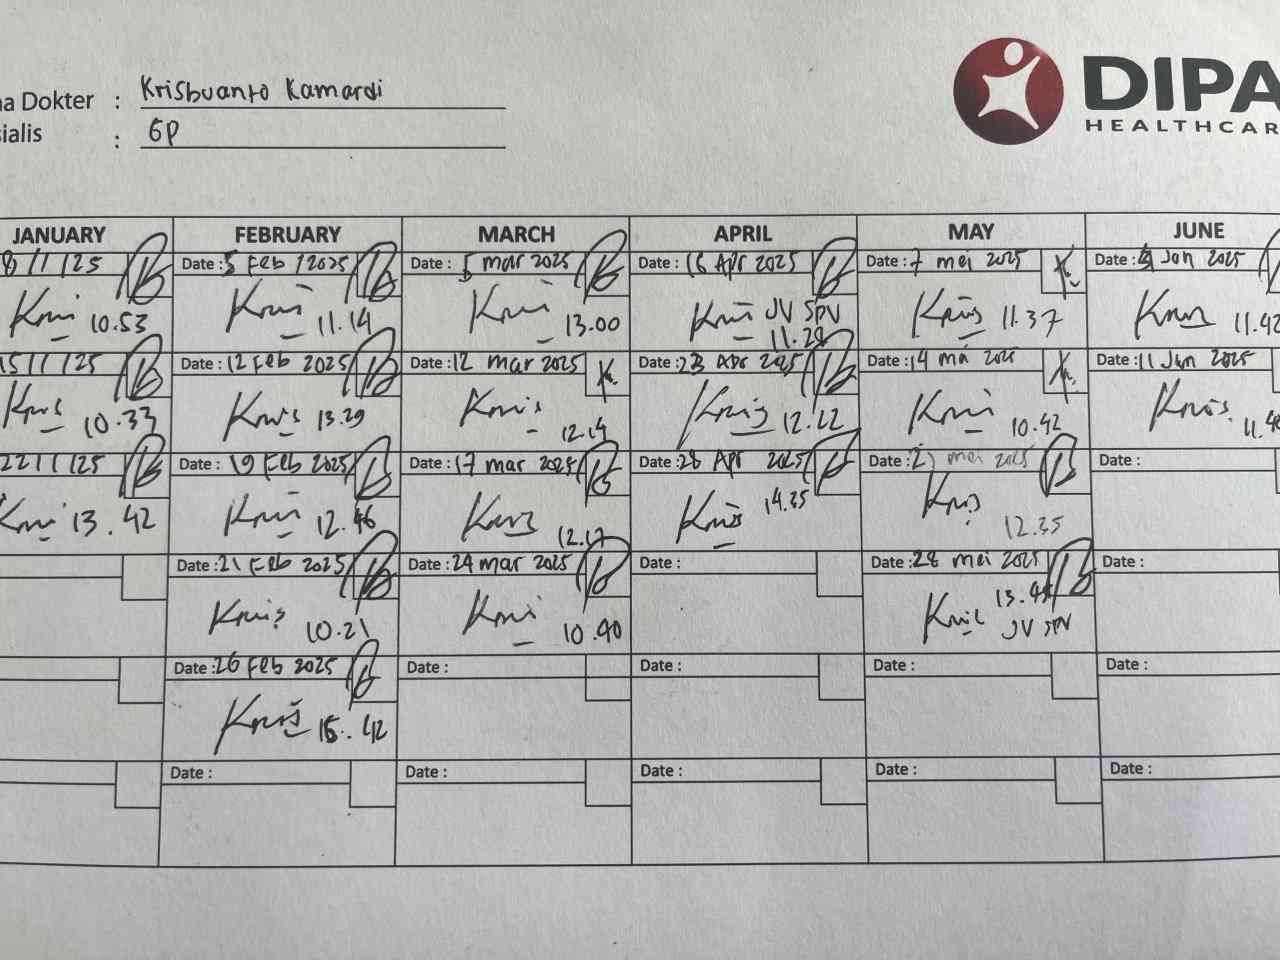 na Dokter : Krisbuanto Kamardi
sialis : GP
DIPA
HEALTHCAR
JANUARY FEBRUARY MARCH APRIL MAY JUNE
8/1/25 Date : 5 Feb 2025 Date : 5 mar 2025 Date : 16 Apr 2025 Date : 7 mei 2025 Date : 4 Jun 2025
Kris 10.53 Kris 11.14 Kris 13.00 Kris JV SPV 11.28 Kris 11.37 Kris 11.42
15/1/25 Date : 12 Feb 2025 Date : 12 mar 2025 Date : 23 Apr 2025 Date : 14 mei 2025 Date : 11 Jun 2025
Kris 10.33 Kris 13.29 Kris 12.14 Kris 12.22 Kris 10.42 Kris 11.4
22/1/25 Date : 19 Feb 2025 Date : 17 mar 2025 Date : 28 Apr 2025 Date : 21 mei 2025 Date :
Kris 13.42 Kris 12.46 Kris 12.17 Kris 14.35 Kris 12.35
Date : 21 Feb 2025 Date : 24 mar 2025 Date : Date : 28 mei 2025 Date :
Kris 10.21 Kris 10.40 Kris JV SPV
Date : 26 Feb 2025 Date : Date : Date : Date :
Kris 15.42
Date : Date : Date : Date : Date :